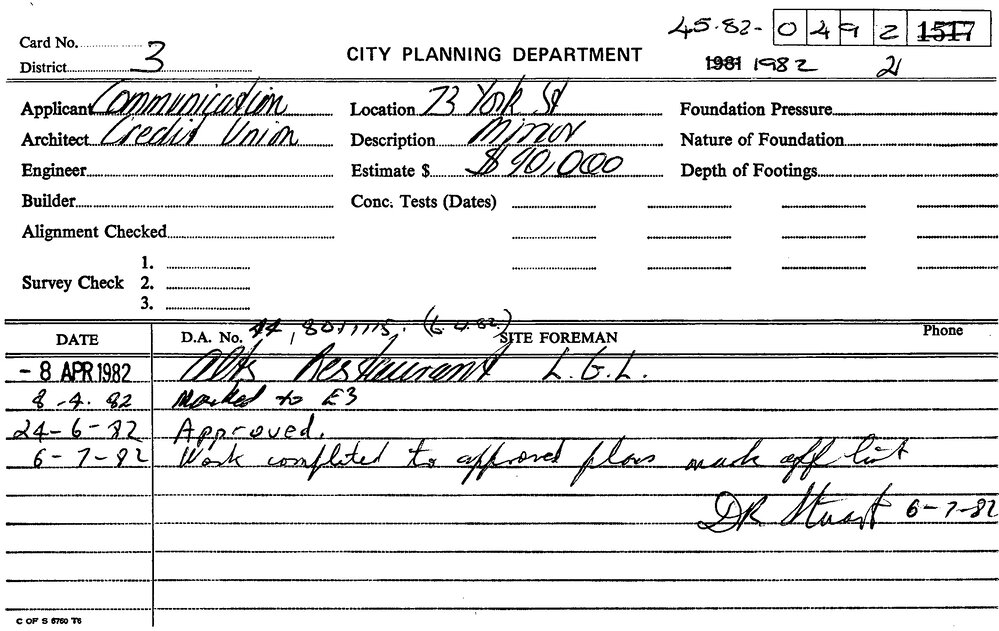 45.82- 0492 1517
Card No. CITY PLANNING DEPARTMENT 1981 1982 21
District 3
Applicant Communication Location 73 York St Foundation Pressure
Architect Credit Union Description Minor Nature of Foundation
Engineer Estimate $ $90,000 Depth of Footings
Builder Conc. Tests (Dates)
Alignment Checked
1.
Survey Check 2.
3.
DATE D.A. No. 44, 801115. (6.4.82.) SITE FOREMAN Phone
- 8 APR 1982 Alts Restaurant L.G.L.
8-4.82 Marked to E3
24-6-82 Approved.
6-7-82 Work completed to approved plans mark off list
DR Stuart 6-7-82
C OF S 6760 T6